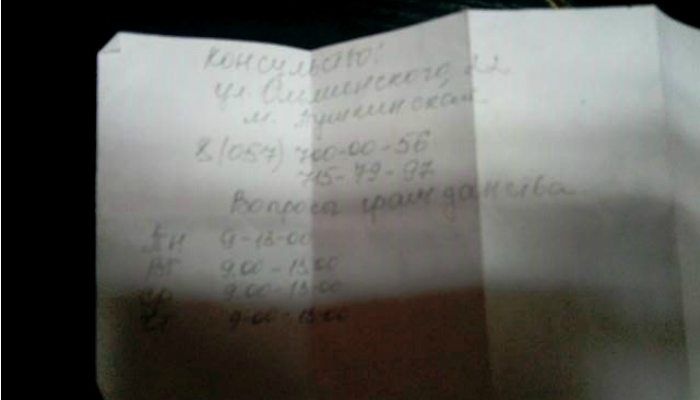 Консульство:
ул. Ольминского 22
м. Пушкинская
8 (057) 700-00-56
715-79-97
Вопросы гражданства
ПН 9-13-00
ВТ 9.00-13.00
Ср 9.00-13-00
Чт 9-00-13.00